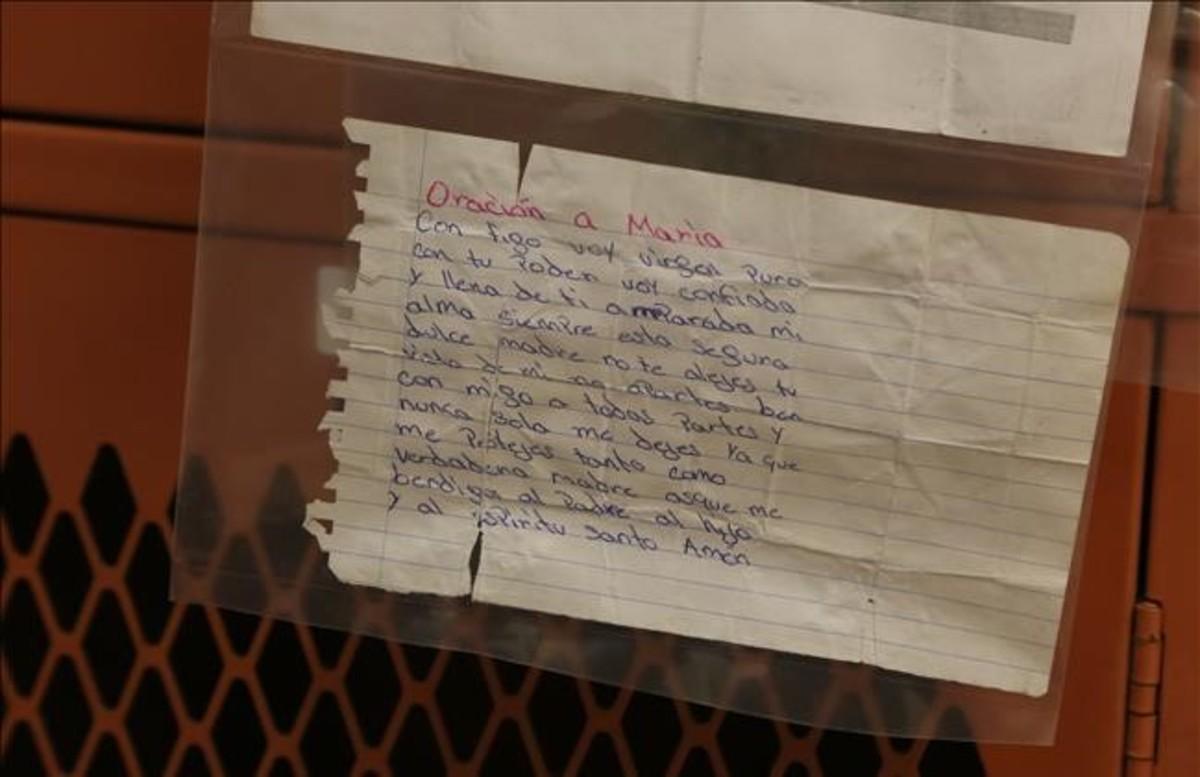 Oración a Maria
Con tigo voy virgen Pura
con tu Poder voy confiada
y llena de ti amParada mi
alma siemPre esta segura
dulce madre no te alejes tu
vista de mi no aPartes ben
con migo a todas Partes y
nunca sola me dejes ya que
me Protejes tanto como
verdadera madre asque me
bendiga el Padre el hijo
y el espiritu santo Amen